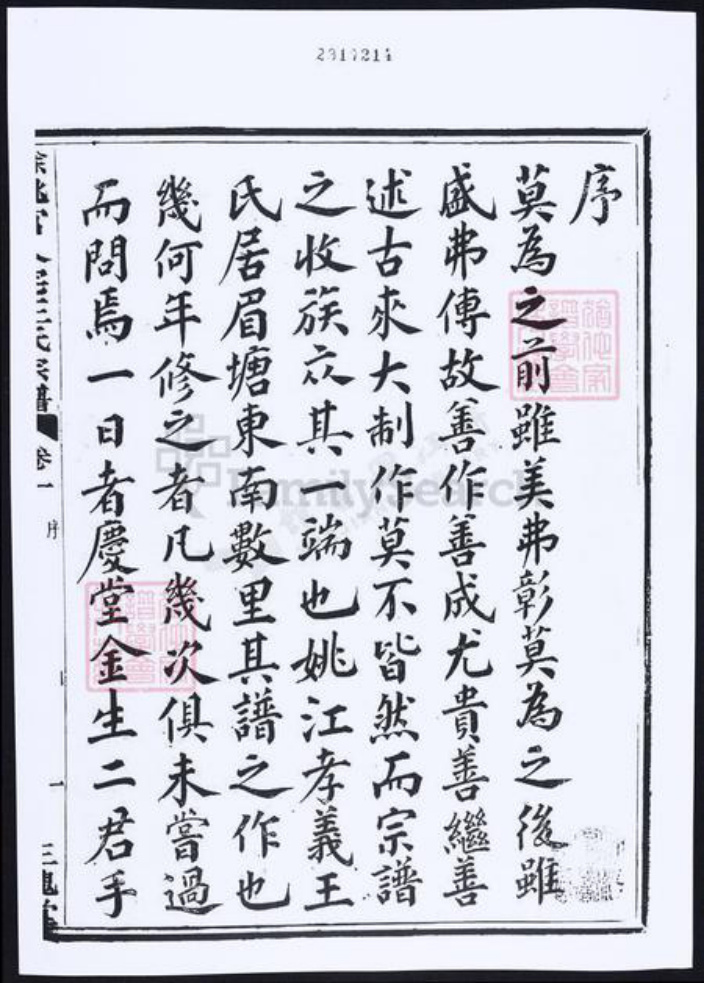 2317214
序
莫為之前雖美弗彰莫為之後雖
盛弗傳故善作善成尤貴善繼善
述古來大制作莫不皆然而宗譜
之收族众其一端也姚江孝義王
氏居眉塘東南數里其譜之作也
幾何年修之者凡幾次俱未嘗過
而問焉一日者慶堂金生二君手
王氏宗譜
卷一
序
一
三槐堂
FamilySearch